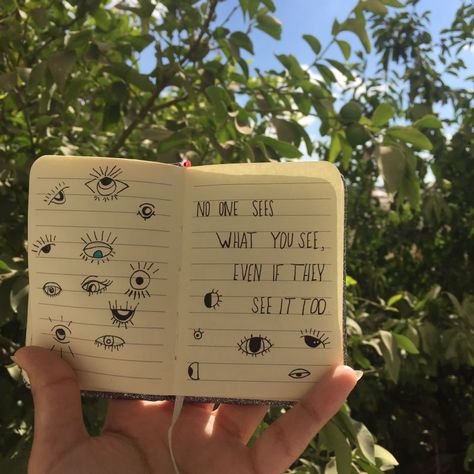 NO ONE SEES
WHAT YOU SEE,
EVEN IF THEY
SEE IT TOO